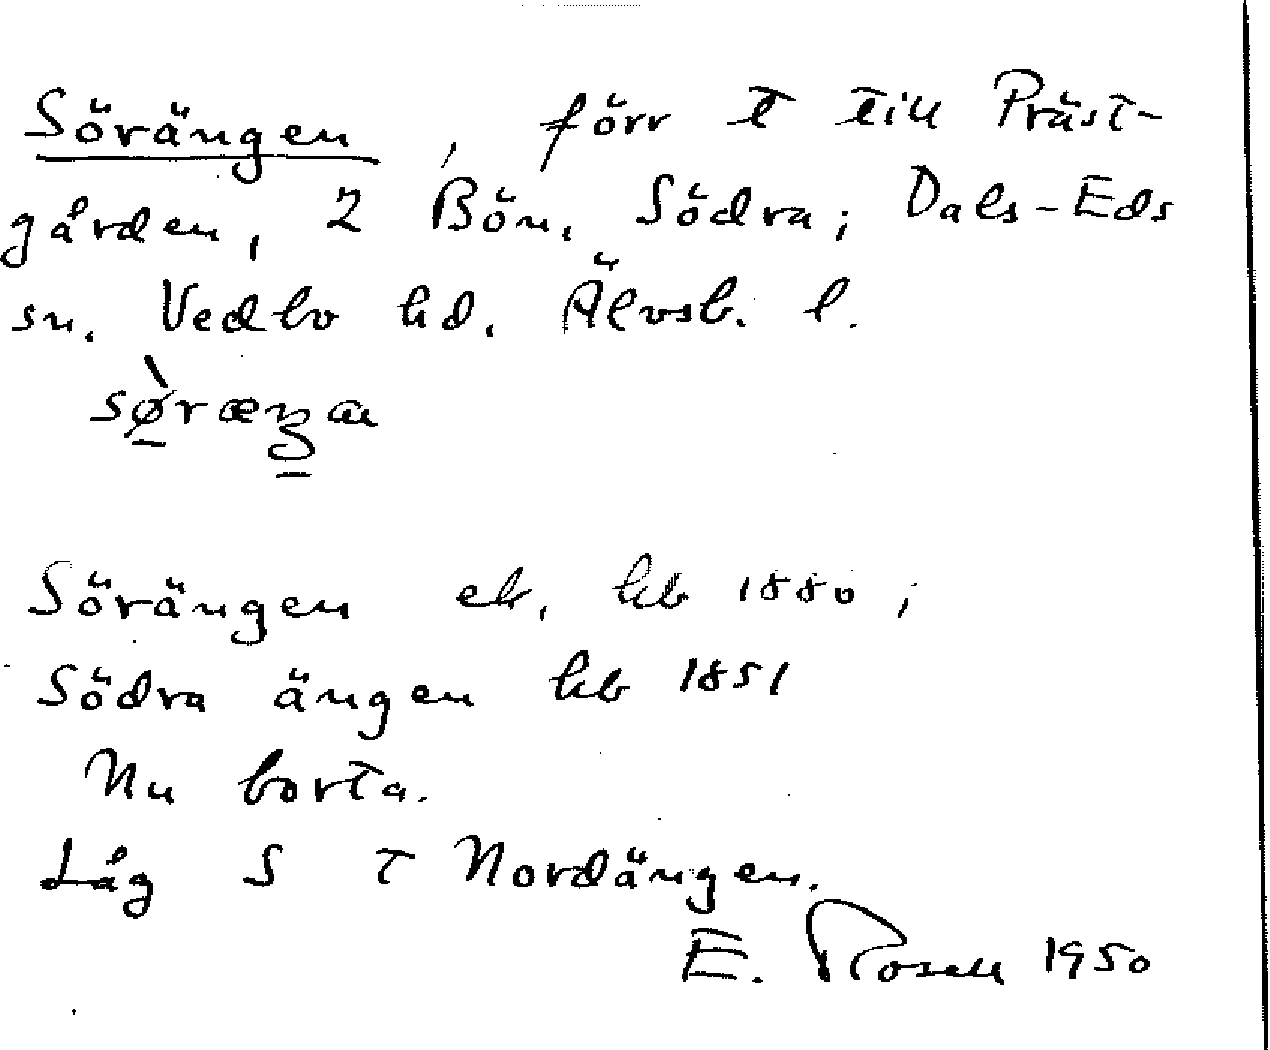 Sörängen, förr t till Präst-
gården, 2 Bön, Södra; Dals-Eds
sn. Vedbo hd. Älvsb. l.
Sörängen ek, hb 1880;
Södra ängen hb 1851
Nu borta.
Låg S T Nordängen.
E. Rosell 1950